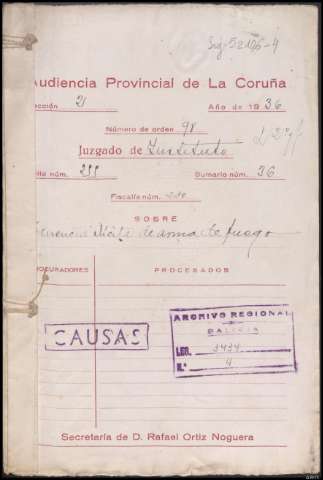 Sig-52106-4
Audiencia Provincial de La Coruña
Sección 2ª Año de 1936
Número de orden 98
Juzgado de Instituto
núm. 255 Sumario núm. 36
Fiscalía núm.
SOBRE
Tenencia ilícita de arma de fuego
PROCURADORES PROCESADOS
CAUSAS
ARCHIVO REGIONAL
GALICIA
LEG. 3434
N.º 4
Secretaría de D. Rafael Ortiz Noguera